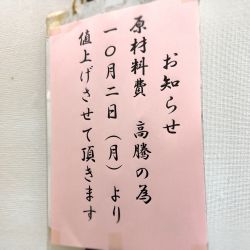 お知らせ
原材料費 高騰の為
一〇月二日(月)より
値上げさせて頂きます